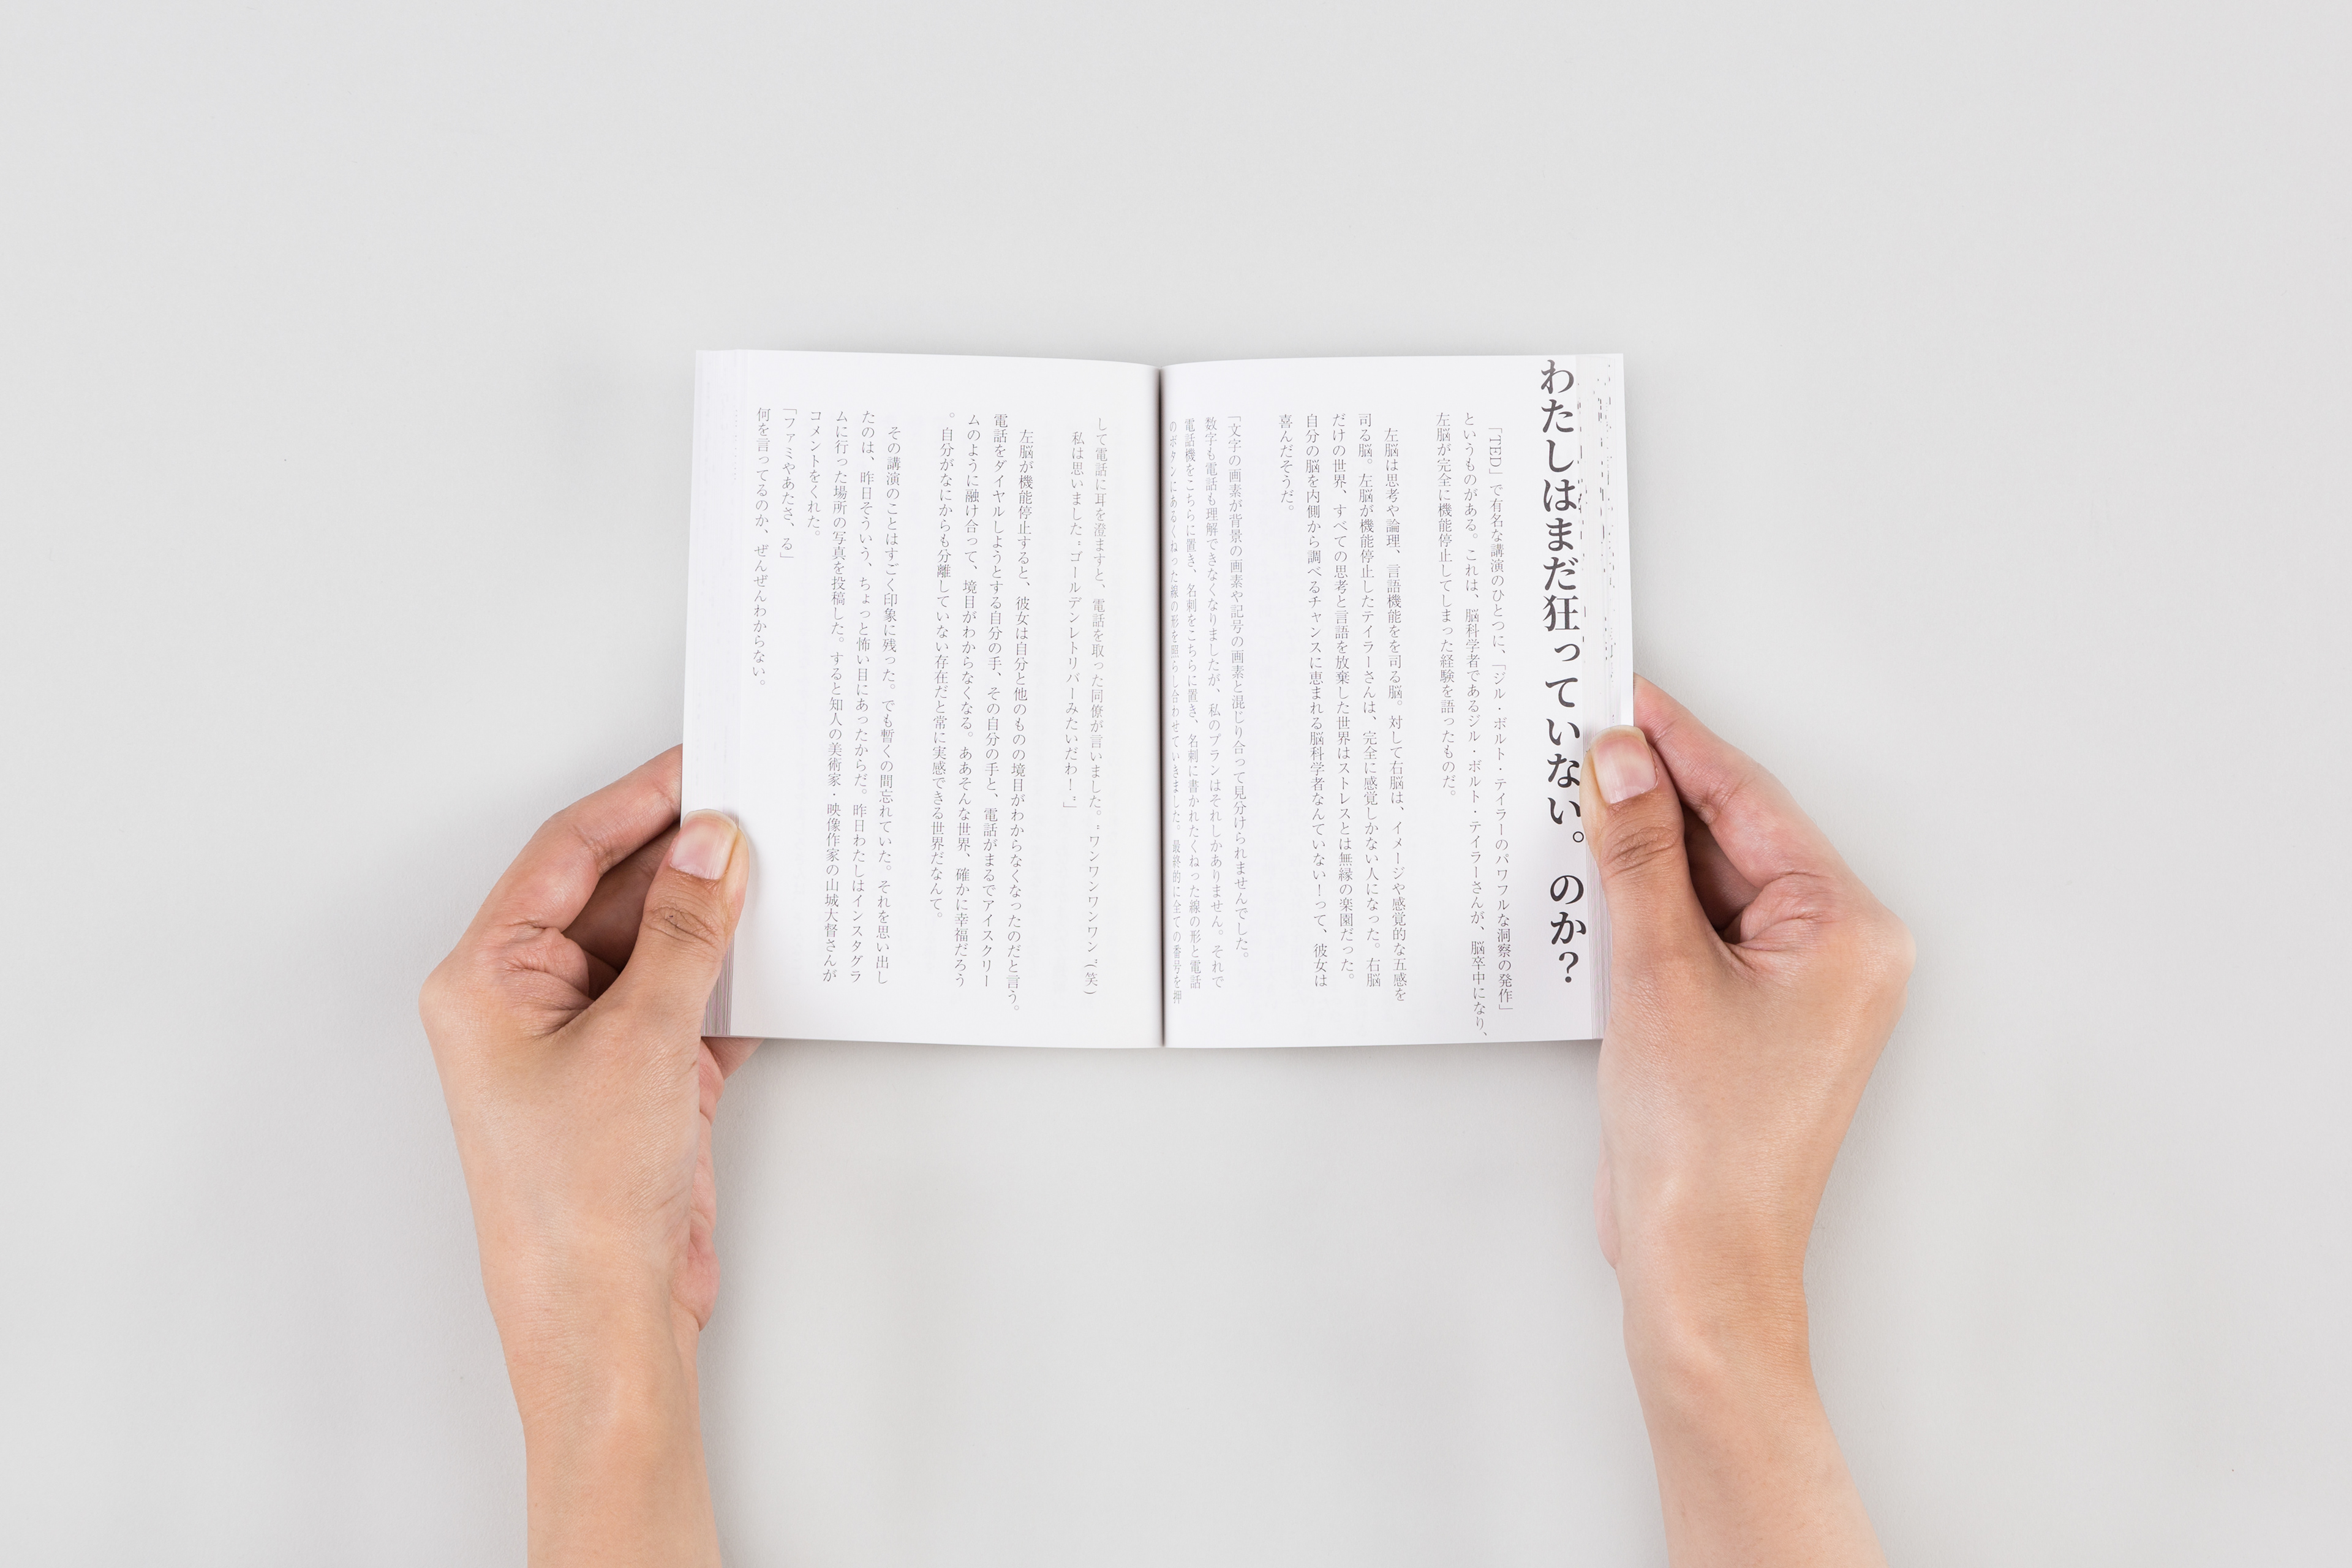 わたしはまだ狂っていない。 のか？
「TED」で有名な講演のひとつに、「ジル・ボルト・テイラーのパワフルな洞察の発作」
というものがある。これは、脳科学者であるジル・ボルト・テイラーさんが、脳卒中になり、
左脳が完全に機能停止してしまった経験を語ったものだ。
左脳は思考や論理、言語機能をを司る脳。対して右脳は、イメージや感覚的な五感を
司る脳。左脳が機能停止したテイラーさんは、完全に感覚しかない人になった。右脳
だけの世界、すべての思考と言語を放棄した世界はストレスとは無縁の楽園だった。
自分の脳を内側から調べるチャンスに恵まれる脳科学者なんていない！って、彼女は
喜んだそうだ。
「文字の画素が背景の画素や記号の画素と混じり合って見分けられませんでした。
数字も電話も理解できなくなりましたが、私のプランはそれしかありません。それで
電話機をこちらに置き、名刺をこちらに置き、名刺に書かれたくねった線の形と電話
のボタンにあるくねった線の形を照らし合わせていきました。最終的に全ての番号を押
して電話に耳を澄ますと、電話を取った同僚が言いました。〝ワンワンワンワン〟(笑)
私は思いました〝ゴールデンレトリバーみたいだわ！〟」
左脳が機能停止すると、彼女は自分と他のものの境目がわからなくなったのだと言う。
電話をダイヤルしようとする自分の手、その自分の手と、電話がまるでアイスクリー
ムのように融け合って、境目がわからなくなる。ああそんな世界、確かに幸福だろう
。自分がなにからも分離していない存在だと常に実感できる世界だなんて。
その講演のことはすごく印象に残った。でも暫くの間忘れていた。それを思い出し
たのは、昨日そういう、ちょっと怖い目にあったからだ。昨日わたしはインスタグラ
ムに行った場所の写真を投稿した。すると知人の美術家・映像作家の山城大督さんが
コメントをくれた。
「ファミやあたさ、る」
何を言ってるのか、ぜんぜんわからない。